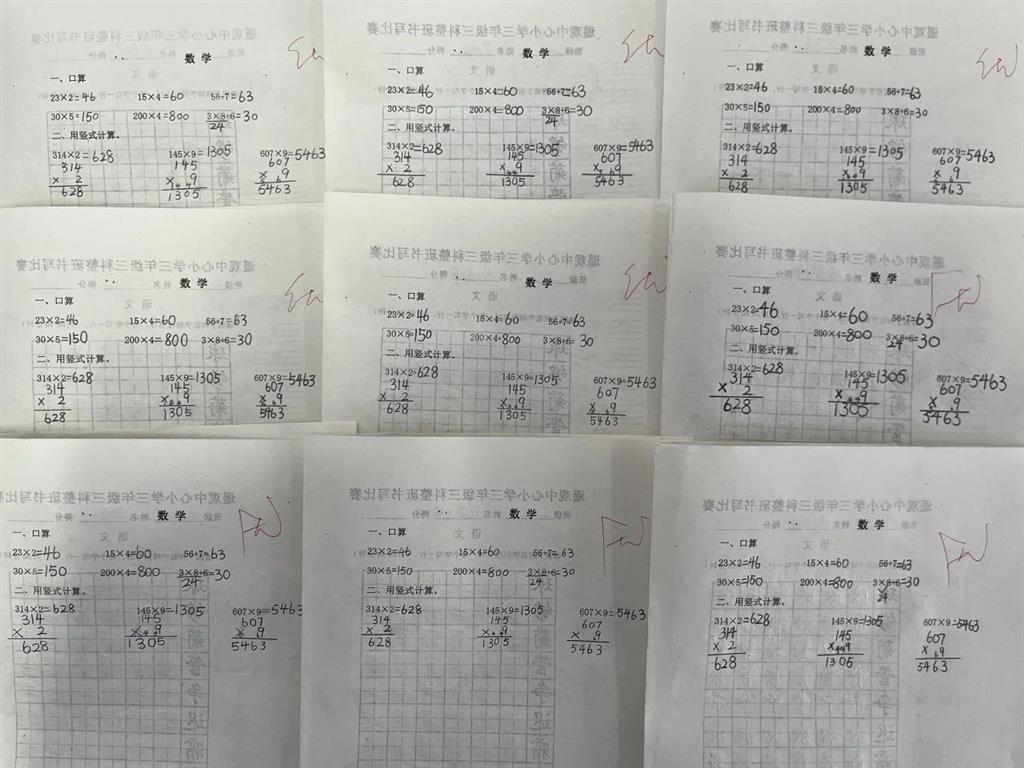 数学
一、口算
23×2=46 15×4=60 56+7=63
30×5=150 200×4=800 3×8+6=30
24
二、用竖式计算。
314×2=628 145×9=1305 607×9=5463
314 145 607
× 2 × 4 4 9 × 6 9
628 1305 5463
数学
一、口算
23×2=46 15×4=60 56+7=63
30×5=150 200×4=800 3×8+6=30
24
二、用竖式计算。
314×2=628 145×9=1305 607×9=5463
314 145 607
× 2 × 4 4 9 × 6 9
628 1305 5463
数学
一、口算
23×2=46 15×4=60 56+7=63
30×5=150 200×4=800 3×8+6=30
24
二、用竖式计算。
314×2=628 145×9=1305 607×9=5463
314 145 607
× 2 × 4 4 9 × 6 9
628 1305 5463
数学
一、口算
23×2=46 15×4=60 56+7=63
30×5=150 200×4=800 3×8+6=30
二、用竖式计算。
314×2=628 145×9=1305 607×9=5463
314 145 607
× 2 × 4 4 9 × 6 9
628 1305 5463
数学
一、口算
23×2=46 15×4=60 56+7=63
30×5=150 200×4=800 3×8+6=30
二、用竖式计算。
314×2=628 145×9=1305 607×9=5463
314 145 607
× 2 × 4 4 9 × 6 9
628 1305 5463
数学
一、口算
23×2=46 15×4=60 56+7=63
30×5=150 200×4=800 3×8+6=30
24
二、用竖式计算。
314×2=628 145×9=1305 607×9=5463
314 145 607
× 2 × 4 4 9 × 6 9
628 1305 5463
数学
一、口算
23×2=46 15×4=60 56+7=63
30×5=150 200×4=800 3×8+6=30
24
二、用竖式计算。
314×2=628 145×9=1305 607×9=5463
314 145 607
× 2 × 4 4 9 × 6 9
628 1305 5463
数学
一、口算
23×2=46 15×4=60 56+7=63
30×5=150 200×4=800 3×8+6=30
24
二、用竖式计算。
314×2=628 145×9=1305 607×9=5463
314 145 607
× 2 × 4 4 9 × 6 9
628 1305 5463
数学
一、口算
23×2=46 15×4=60 56+7=63
30×5=150 200×4=800 3×8+6=30
24
二、用竖式计算。
314×2=628 145×9=1305 607×9=5463
314 145 607
× 2 × 4 4 9 × 6 9
628 1305 5463